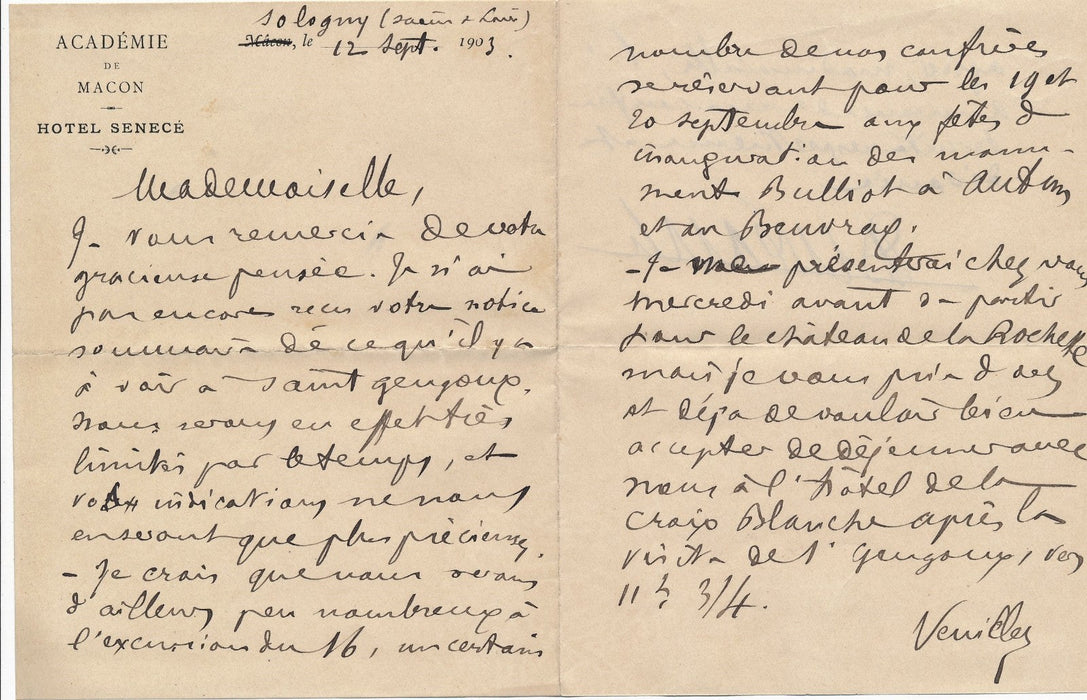 ACADÉMIE
DE
MACON
HOTEL SENECÉ
Sologny (Saône & Loire)
Mâcon, le 12 Sept. 1903.
Mademoiselle,
Je vous remercie de votre
gracieuse pensée. Je n'ai
pas encore reçu votre notice
sommaire de ce qu'il y a
à voir à Saint Gengoux.
Nous serons en effet très
limités par le temps, et
vos indications ne nous
en seront que plus précieuses.
- Je crois que nous serons
d'ailleurs peu nombreux à
l'excursion du 16, un certain
nombre de nos confrères
se réservant pour les 19 et
20 septembre aux fêtes d'
inauguration des monu-
ments Bulliot à Autun
et au Beuvray.
- Je me présenterai chez vous
mercredi avant de partir
pour le château de la Rochette
mais je vous prie d'ores
et déjà de vouloir bien
accepter de déjeuner avec
nous à l'hôtel de la
Croix Blanche après la
visite de St Gengoux, vers
11 h 3/4.
Veuillez